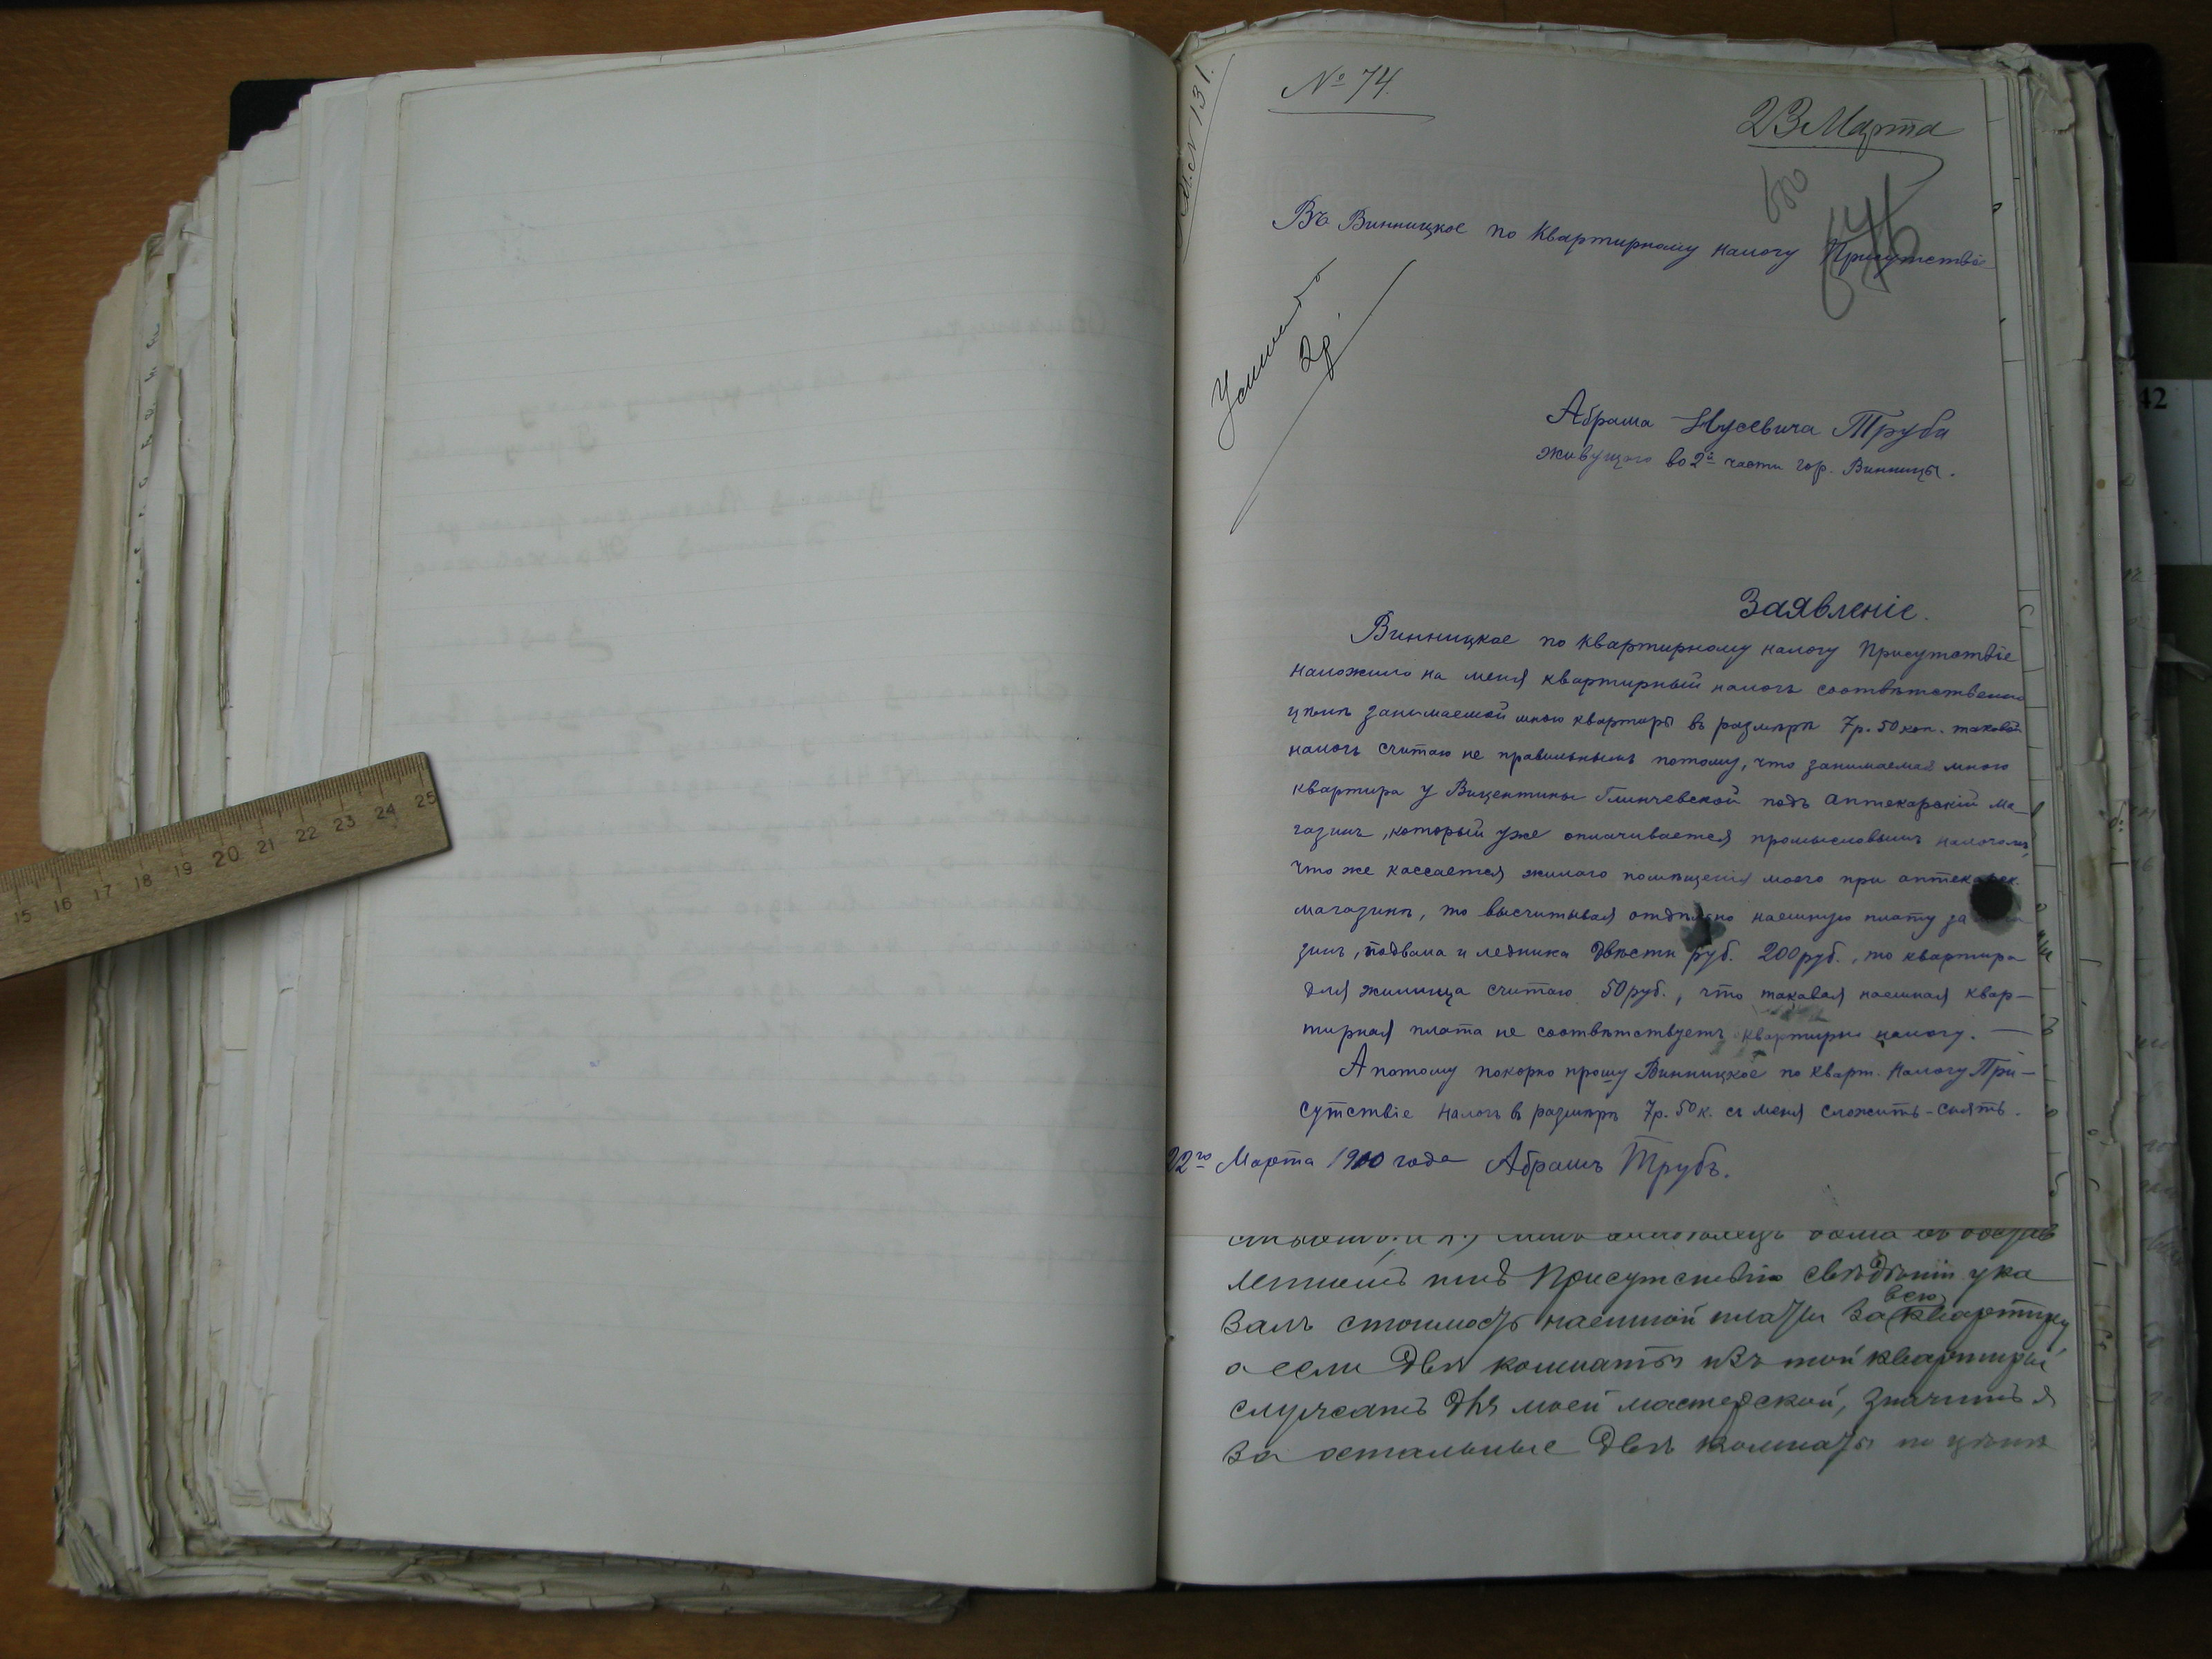 № 74.
23 Марта
Въ Винницкое по Квартирному налогу Присутствіе
2р.
Абрама Нусевича Труба
живущаго во 2й части гор. Винницы.
Заявленіе.
Винницкое по квартирному налогу Присутствіе
наложило на меня квартирный налогъ соотвѣтственно
цѣнѣ занимаемой мною квартиры въ размѣрѣ 7р. 50 коп. таковой
налогъ считаю не правильнымъ потому, что занимаемая мною
квартира у Вицентины Глинчевской подъ аптекарскій ма-
газинъ, который уже оплачивается промысловымъ налогомъ,
что же кассается жилого помѣщенія моего при аптекарск.
магазинѣ, то высчитывая отдѣльно наемную плату за
зинъ, подвала и ледника двѣсти руб. 200 руб., то квартира
для жилища считаю 50 руб., что таковая наемная квар-
тирная плата не соотвѣтствуетъ квартирн налогу. —
А потому покорно прошу Винницкое по кварт. налогу При-
сутствіе налогъ в размѣрѣ 7р. 50 к. съ меня сложить-снять.
22го Марта 1910 года Абрамъ Трубъ.
Присутствію свѣдѣніи ука
залъ стоимость наемной платы за всю квартиру
а если двѣ комнаты изъ той квартиры
служатъ для моей мастерской, значитъ я
за остальные двѣ комнаты по цѣнѣ
15 16 17 18 19 20 21 22 23 24 25
42